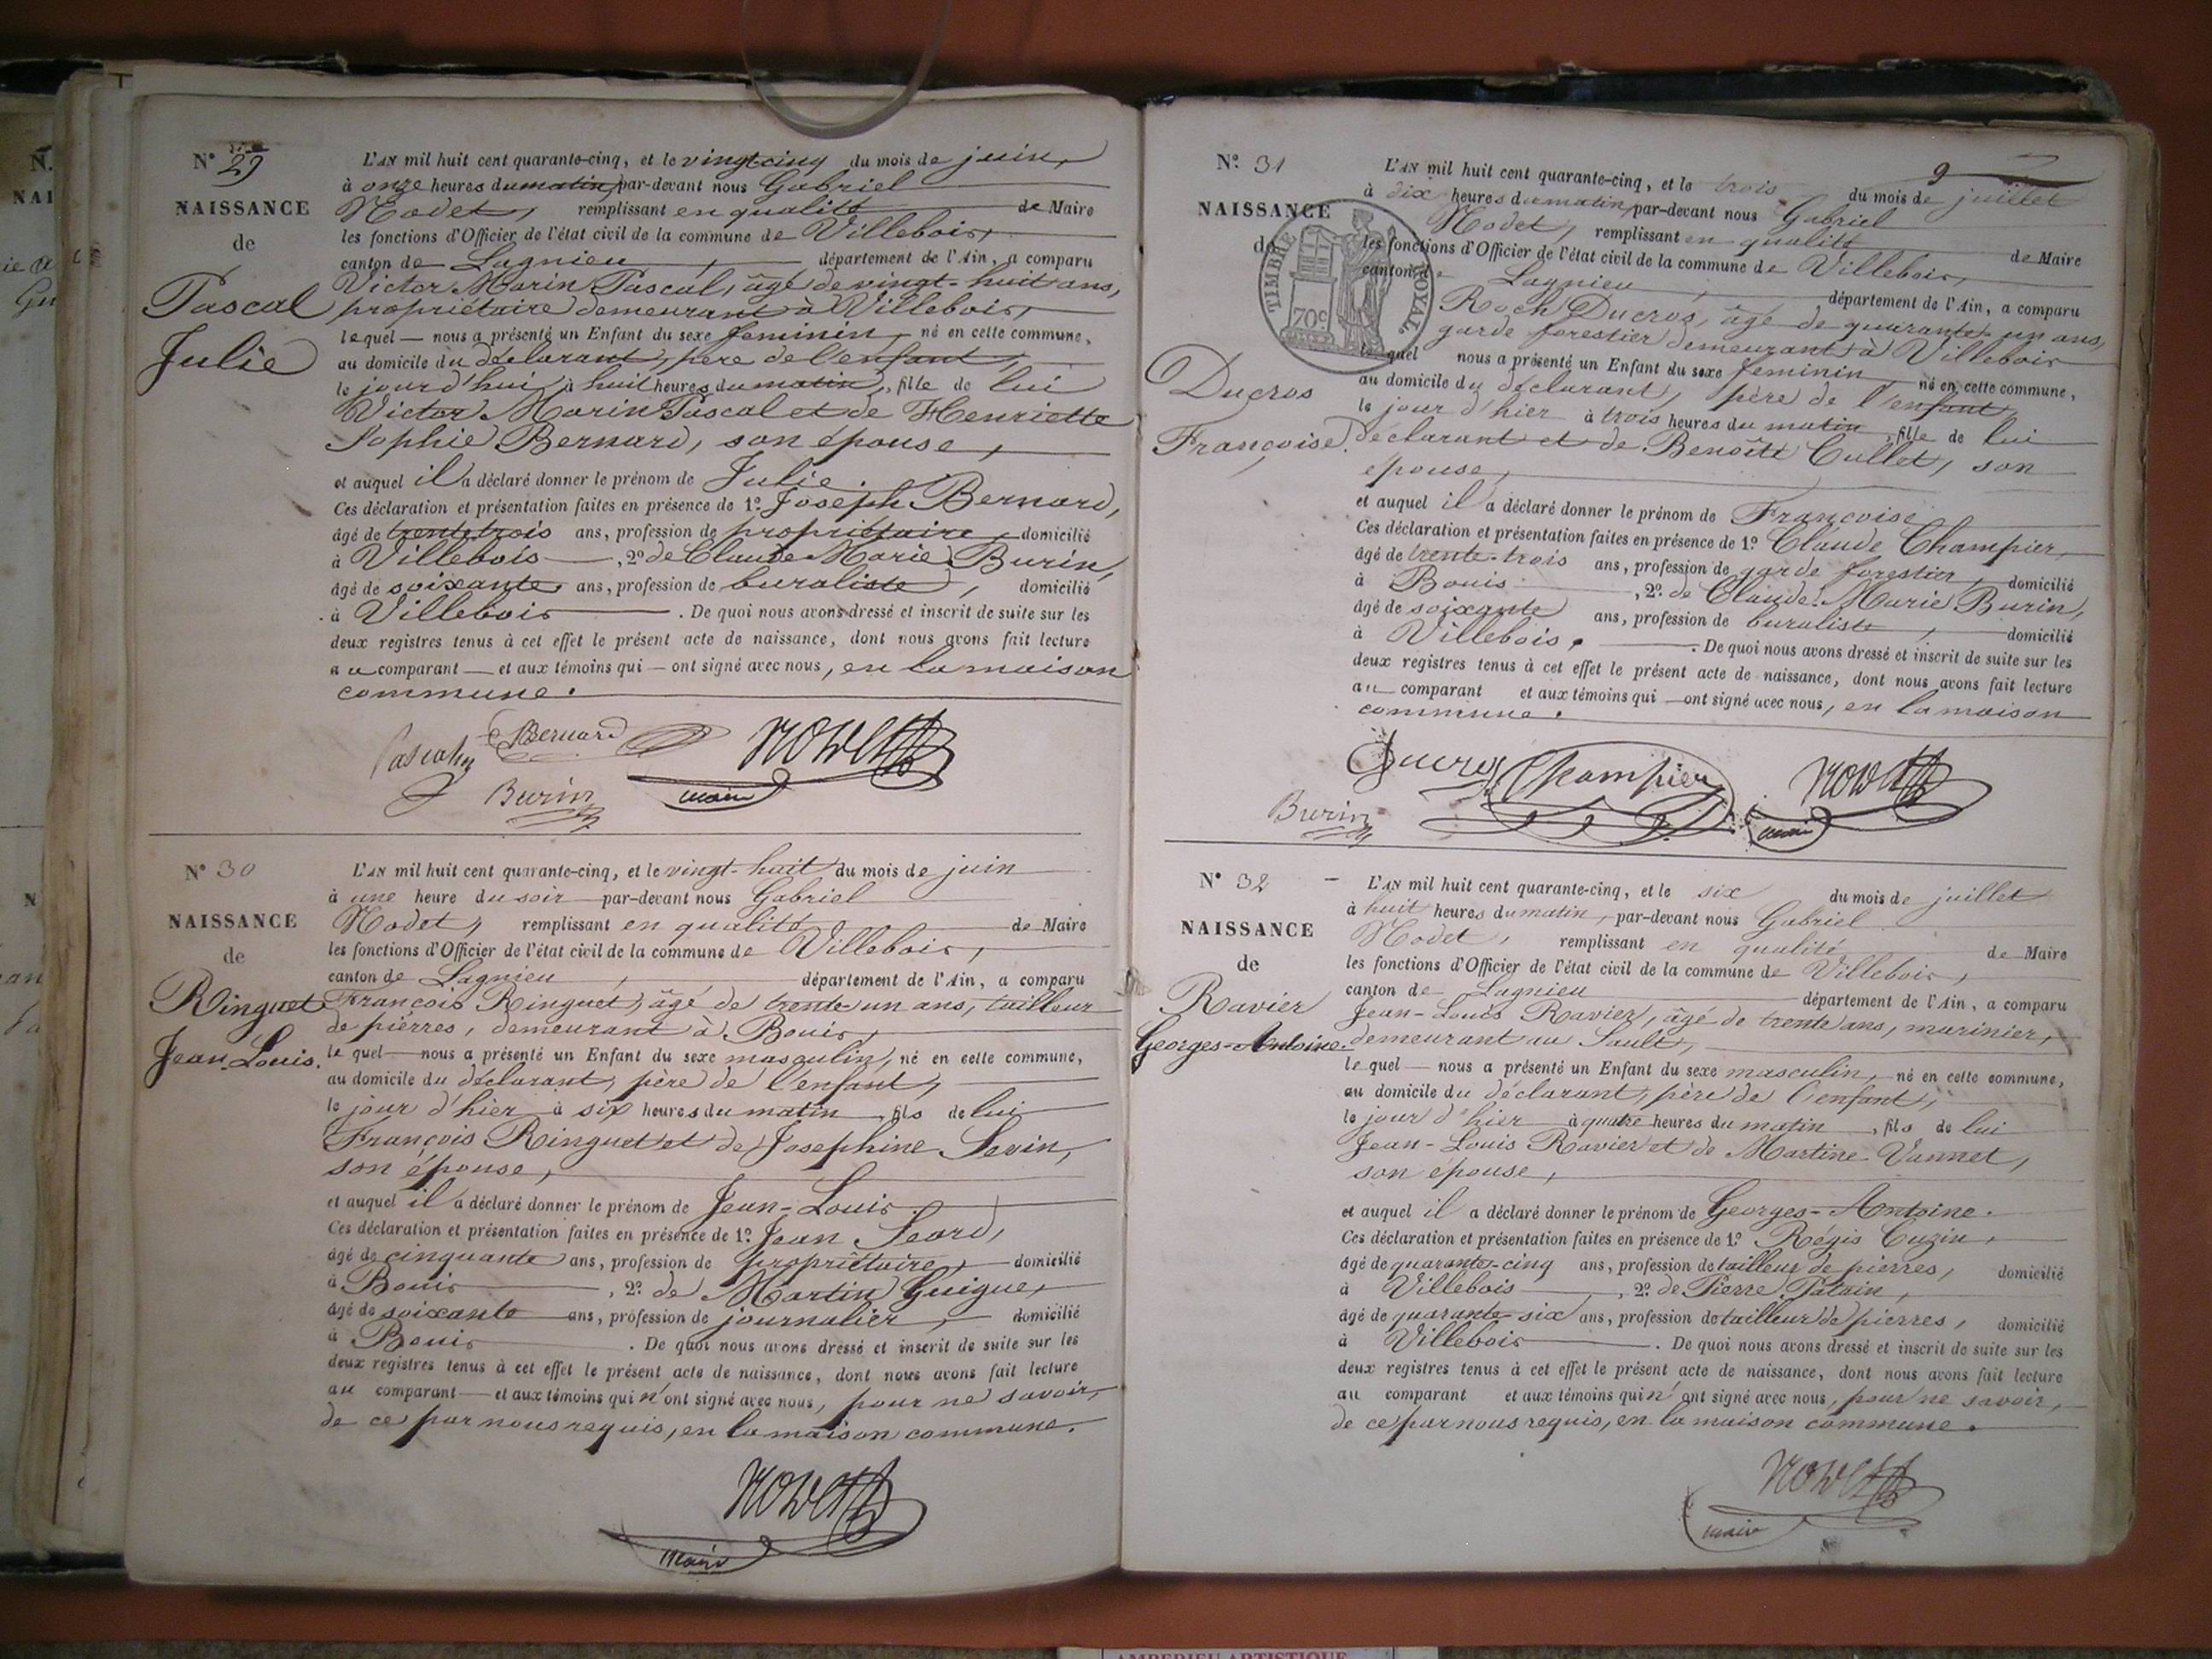 N° 29
NAISSANCE
de
Pascal
Julie
L'AN mil huit cent quarante-cinq, et le vingt cinq du mois de juin,
à onze heures du matin, par-devant nous Gabriel
Nodet, remplissant en qualité de Maire
les fonctions d'Officier de l'état civil de la commune de Villebois,
canton de Lagnieu, département de l'Ain, a comparu
Victor Marin Pascal, âgé de vingt-huit ans,
propriétaire demeurant à Villebois,
lequel nous a présenté un Enfant du sexe feminin, né en cette commune,
au domicile du déclarant, père de l'enfant,
le jour d'hui à huit heures du matin, fille de lui
Victor Marin Pascal et de Henriette
Sophie Bernard, son épouse,
et auquel il a déclaré donner le prénom de Julie.
Ces déclaration et présentation faites en présence de 1° Joseph Bernard,
âgé de trente trois ans, profession de propriétaire, domicilié
à Villebois, 2° de Claude Marie Burin,
âgé de soixante ans, profession de buraliste, domicilié
à Villebois. De quoi nous avons dressé et inscrit de suite sur les
deux registres tenus à cet effet le présent acte de naissance, dont nous avons fait lecture
au comparant et aux témoins qui ont signé avec nous, en la maison
commune.
Bernard
Nodet
Burin
maire
N° 30
NAISSANCE
de
Ringuet
Jean-Louis.
L'AN mil huit cent quarante-cinq, et le vingt-huit du mois de juin
à une heure du soir par-devant nous Gabriel
Nodet, remplissant en qualité de Maire
les fonctions d'Officier de l'état civil de la commune de Villebois,
canton de Lagnieu, département de l'Ain, a comparu
François Ringuet, âgé de trente-un ans, tailleur
de pierres, demeurant à Bouis,
lequel nous a présenté un Enfant du sexe masculin, né en cette commune,
au domicile du déclarant, père de l'enfant,
le jour d'hier à six heures du matin fils de lui
François Ringuet et de Josephine Sevin,
son épouse,
et auquel il a déclaré donner le prénom de Jean-Louis.
Ces déclaration et présentation faites en présence de 1° Jean Seard,
âgé de cinquante ans, profession de propriétaire, domicilié
à Bouis, 2° de Martin Guigue,
âgé de soixante ans, profession de journalier, domicilié
à Bouis. De quoi nous avons dressé et inscrit de suite sur les
deux registres tenus à cet effet le présent acte de naissance, dont nous avons fait lecture
au comparant et aux témoins qui n'ont signé avec nous, pour ne savoir,
de ce par nous requis, en la maison commune.
Nodet
maire
9
N° 31
NAISSANCE
de
Ducros
Françoise.
TIMBRE ROYAL
70c
L'AN mil huit cent quarante-cinq, et le trois du mois de juillet
à dix heures du matin, par-devant nous Gabriel
Nodet, remplissant en qualité de Maire
les fonctions d'Officier de l'état civil de la commune de Villebois,
canton de Lagnieu, département de l'Ain, a comparu
Roch Ducros, âgé de quarante-un ans,
garde forestier demeurant à Villebois
lequel nous a présenté un Enfant du sexe feminin, né en cette commune,
au domicile du déclarant, père de l'enfant,
le jour d'hier à trois heures du matin, fille de lui
déclarant et de Benoîte Cullet, son
épouse,
et auquel il a déclaré donner le prénom de Françoise
Ces déclaration et présentation faites en présence de 1° Claude Champier,
âgé de trente-trois ans, profession de garde forestier, domicilié
à Bouis, 2° de Claude-Marie Burin,
âgé de soixante ans, profession de buraliste, domicilié
à Villebois. De quoi nous avons dressé et inscrit de suite sur les
deux registres tenus à cet effet le présent acte de naissance, dont nous avons fait lecture
au comparant et aux témoins qui ont signé avec nous, en la maison
commune.
Ducros Champier Nodet
Burin maire
N° 32
NAISSANCE
de
Ravier
Georges-Antoine.
L'AN mil huit cent quarante-cinq, et le six du mois de juillet
à huit heures du matin, par-devant nous Gabriel
Nodet, remplissant en qualité de Maire
les fonctions d'Officier de l'état civil de la commune de Villebois,
canton de Lagnieu département de l'Ain, a comparu
Jean-Louis Ravier, âgé de trente ans, marinier,
demeurant au Sault,
lequel nous a présenté un Enfant du sexe masculin, né en cette commune,
au domicile du déclarant, père de l'enfant,
le jour d'hier à quatre heures du matin, fils de lui
Jean-Louis Ravier et de Martine Vannet,
son épouse,
et auquel il a déclaré donner le prénom de Georges-Antoine.
Ces déclaration et présentation faites en présence de 1° Régis Cuzin,
âgé de quarante-cinq ans, profession de tailleur de pierres, domicilié
à Villebois, 2° de Pierre Patain,
âgé de quarante-six ans, profession de tailleur de pierres, domicilié
à Villebois. De quoi nous avons dressé et inscrit de suite sur les
deux registres tenus à cet effet le présent acte de naissance, dont nous avons fait lecture
au comparant et aux témoins qui n'ont signé avec nous, pour ne savoir,
de ce par nous requis, en la maison commune.
Nodet
maire
AMBERIEU ARTISTIQUE